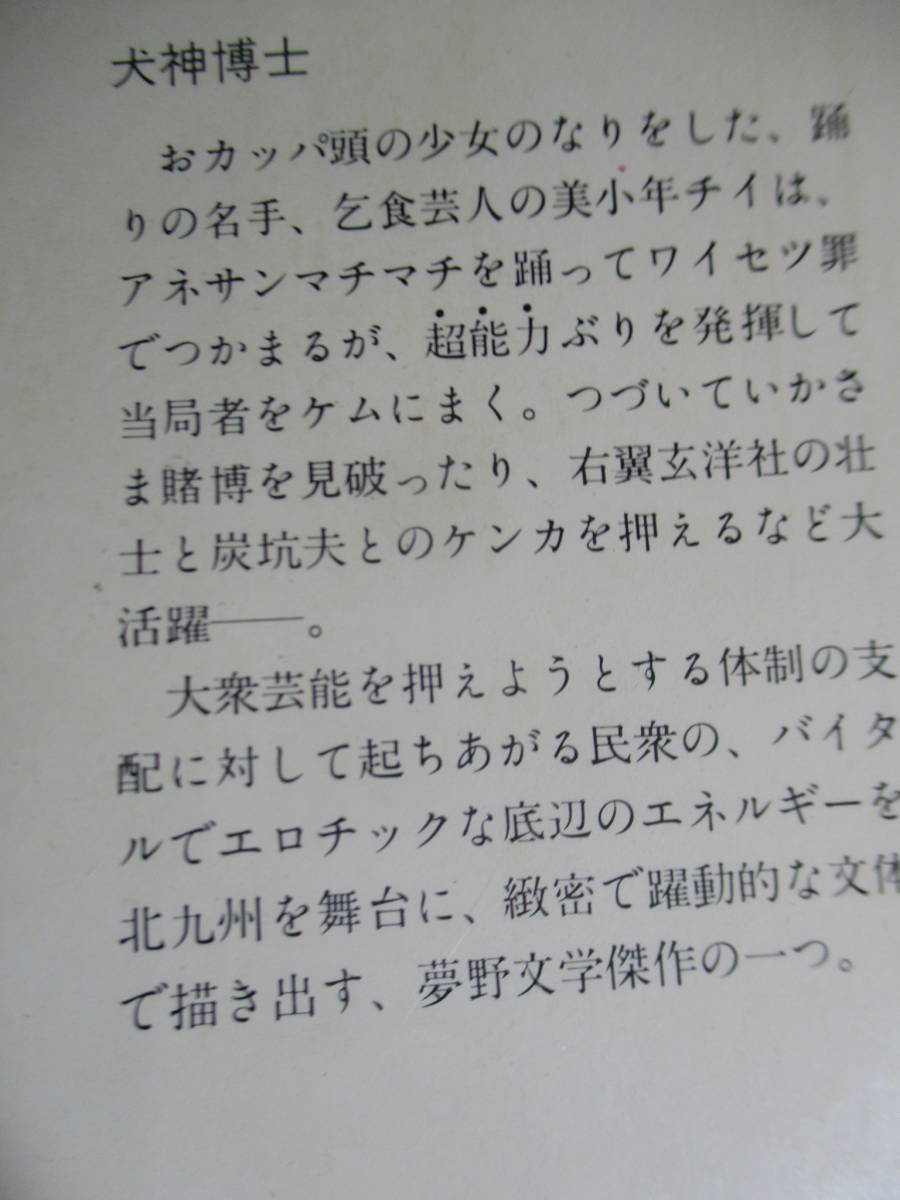 犬神博士
おカッパ頭の少女のなりをした、踊
りの名手、乞食芸人の美小年チイは、
アネサンマチマチを踊ってワイセツ罪
でつかまるが、超能力ぶりを発揮して
当局者をケムにまく。つづいていかさ
ま賭博を見破ったり、右翼玄洋社の壮
士と炭坑夫とのケンカを押えるなど大
活躍——。
大衆芸能を押えようとする体制の支
配に対して起ちあがる民衆の、バイタ
ルでエロチックな底辺のエネルギーを
北九州を舞台に、緻密で躍動的な文体
で描き出す、夢野文学傑作の一つ。